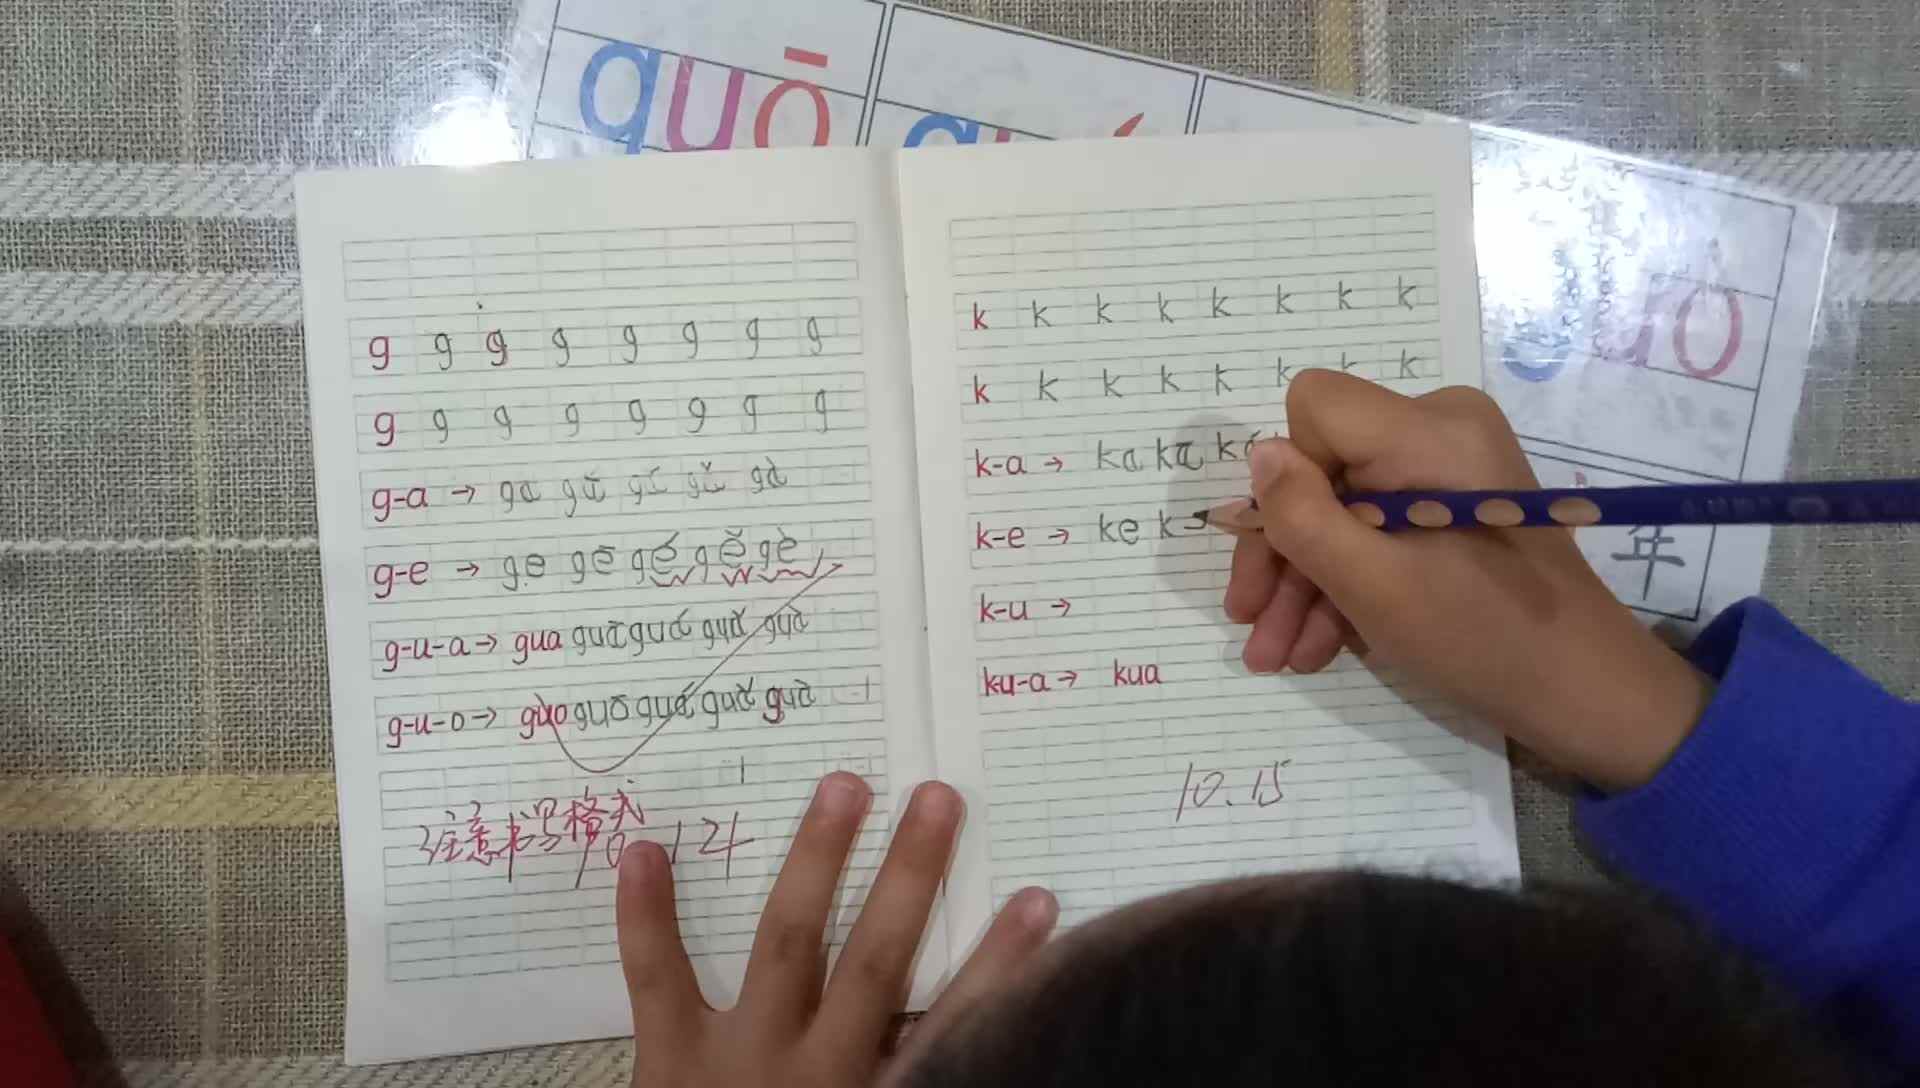 guō
g g g g g g g g
g g g g g g g g
g-a → ga gā gá gǎ gà
g-e → ge gē gé gě gè
g-u-a → gua guā guá guǎ guà
g-u-o → guo guō
注意书写格式
10.14
k k k k k k k k
k k k k k k k k
k-a → ka kā ká
k-e → ke k
k-u →
ku-a → kua
10.15
年